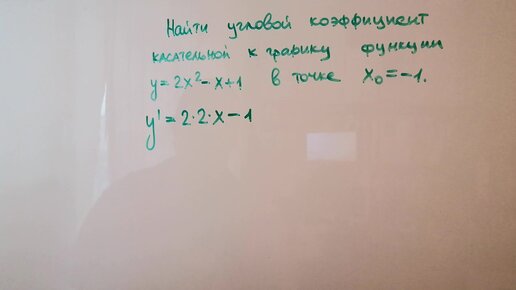 Найти угловой коэффициент
касательной к графику функции
y=2x²-x+1 в точке x₀=-1.
y'=2·2·x-1